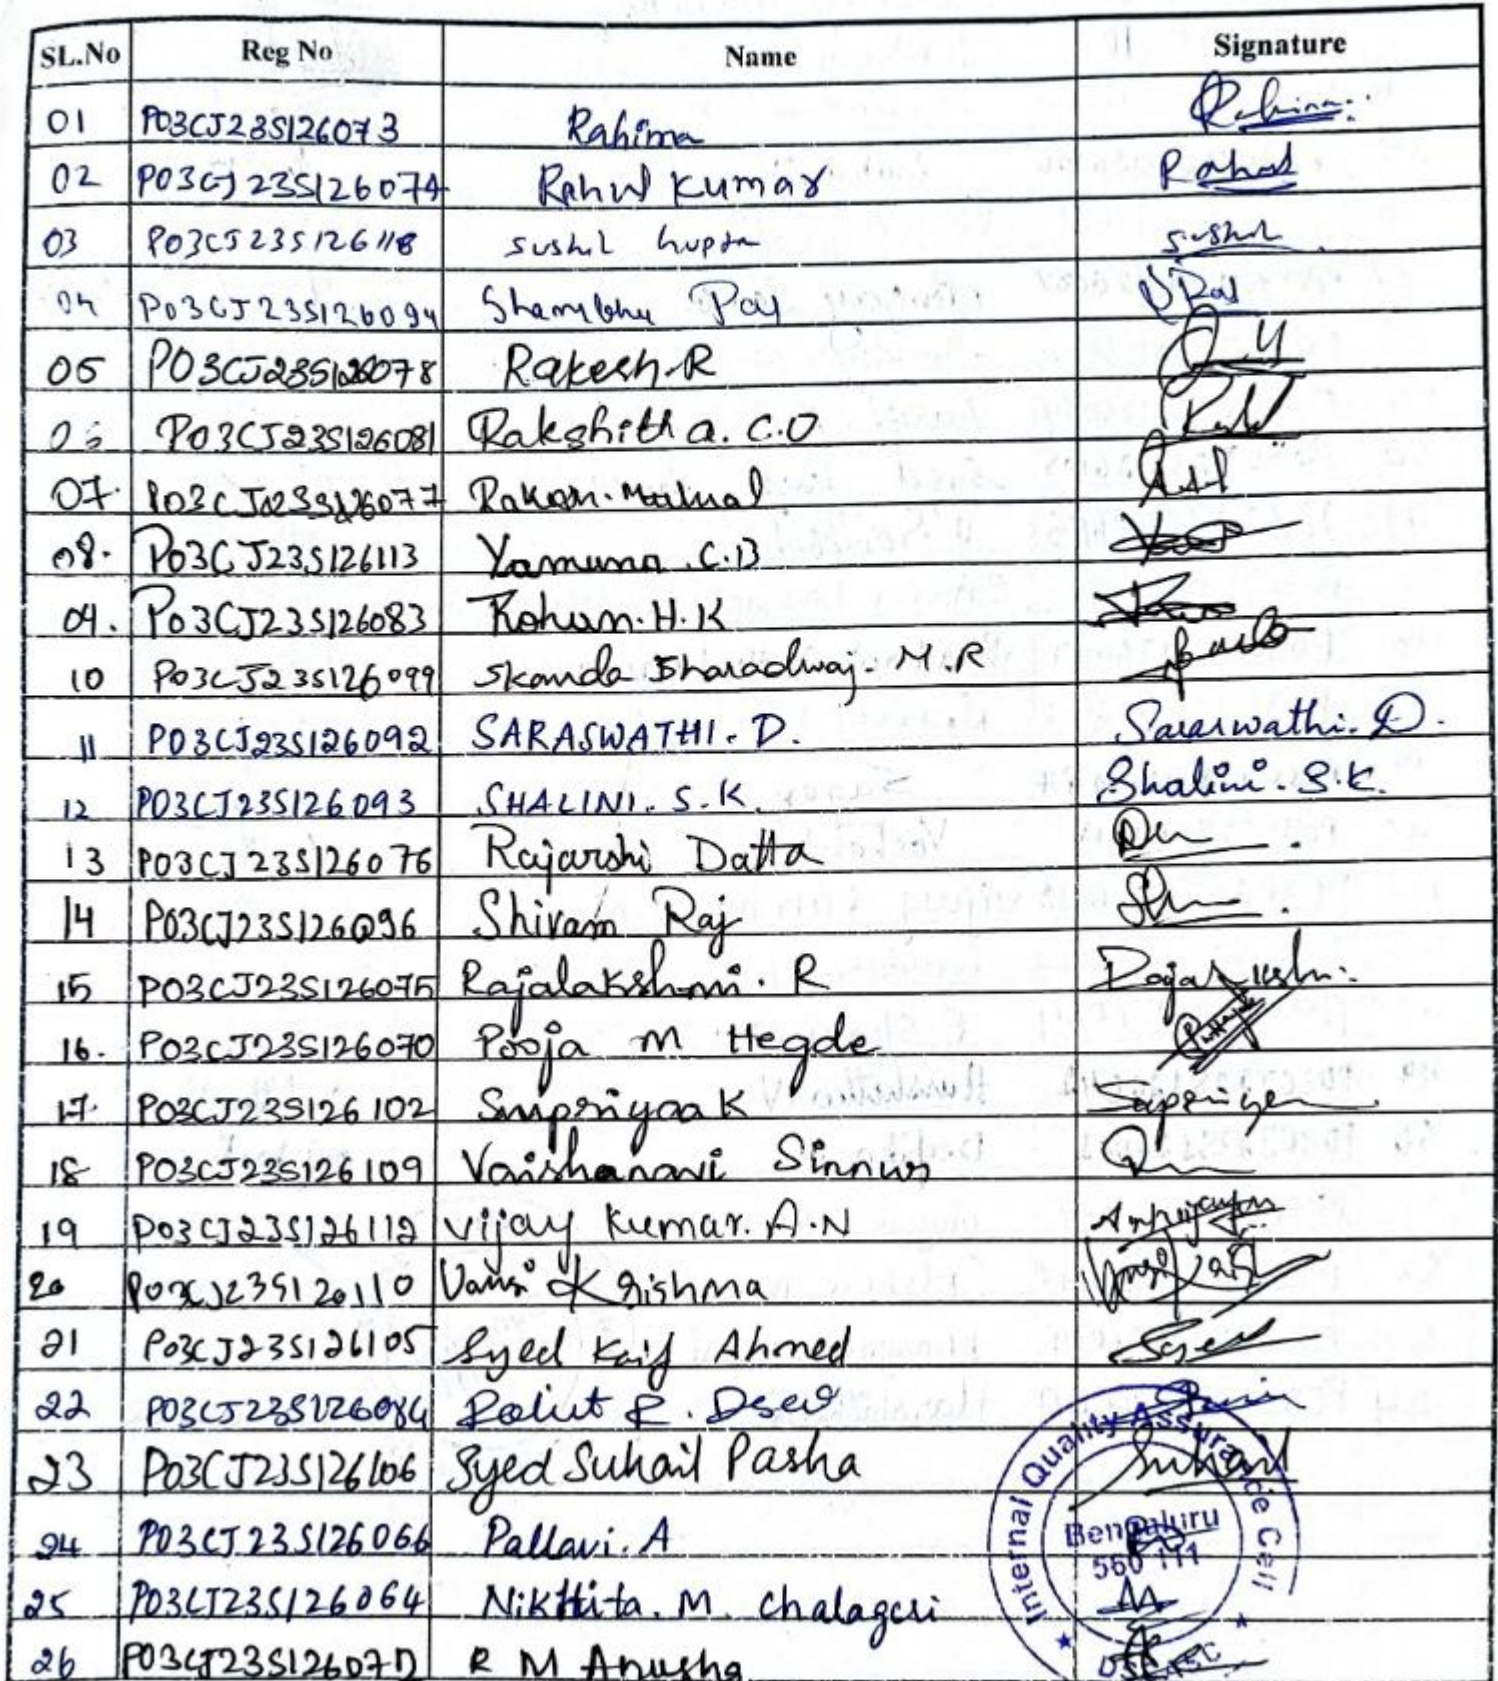 SL.No Reg No Name Signature
01 P03CJ23S126073 Rahima Rahima
02 P03CJ23S126074 Rahul Kumar Rahul
03 P03CJ23S126118 sushil Gupta sushil
04 P03CJ23S126094 Shambhu Raj
05 P03CJ23S126078 Rakesh.R
06 P03CJ23S126081 Rakshitha.C.O
07. P03CJ23S126077
08. P03CJ23S126113 Yamuna.C.B
09. P03CJ23S126083 Rohan.H.K
10 P03CJ23S126099 Skanda Bharadwaj.M.R
11 P03CJ23S126092 SARASWATHI.D. Saraswathi.D.
12 P03CJ23S126093 SHALINI.S.K. Shalini.S.K.
13 P03CJ23S126076 Rajarshi Datta
14 P03CJ23S126096 Shivam Raj
15 P03CJ23S126075 Rajalakshmi.R
16. P03CJ23S126070 Pooja M Hegde
17. P03CJ23S126102 Supriyaa K Supriyaa
18 P03CJ23S126109 Vaishanavi
19 P03CJ23S126112 Vijay Kumar.A.N
20 Vamsi Krishma
21 P03CJ23S126105 Syed Kaif Ahmed Syed
22 P03CJ23S126084
23 P03CJ23S126106 Syed Suhail Pasha Suhail
24 P03CJ23S126066 Pallavi.A
25 P03CJ23S126064 Nikhita.M.
26 R M Anusha
Internal Quality Assurance Cell
Bengaluru
560 111